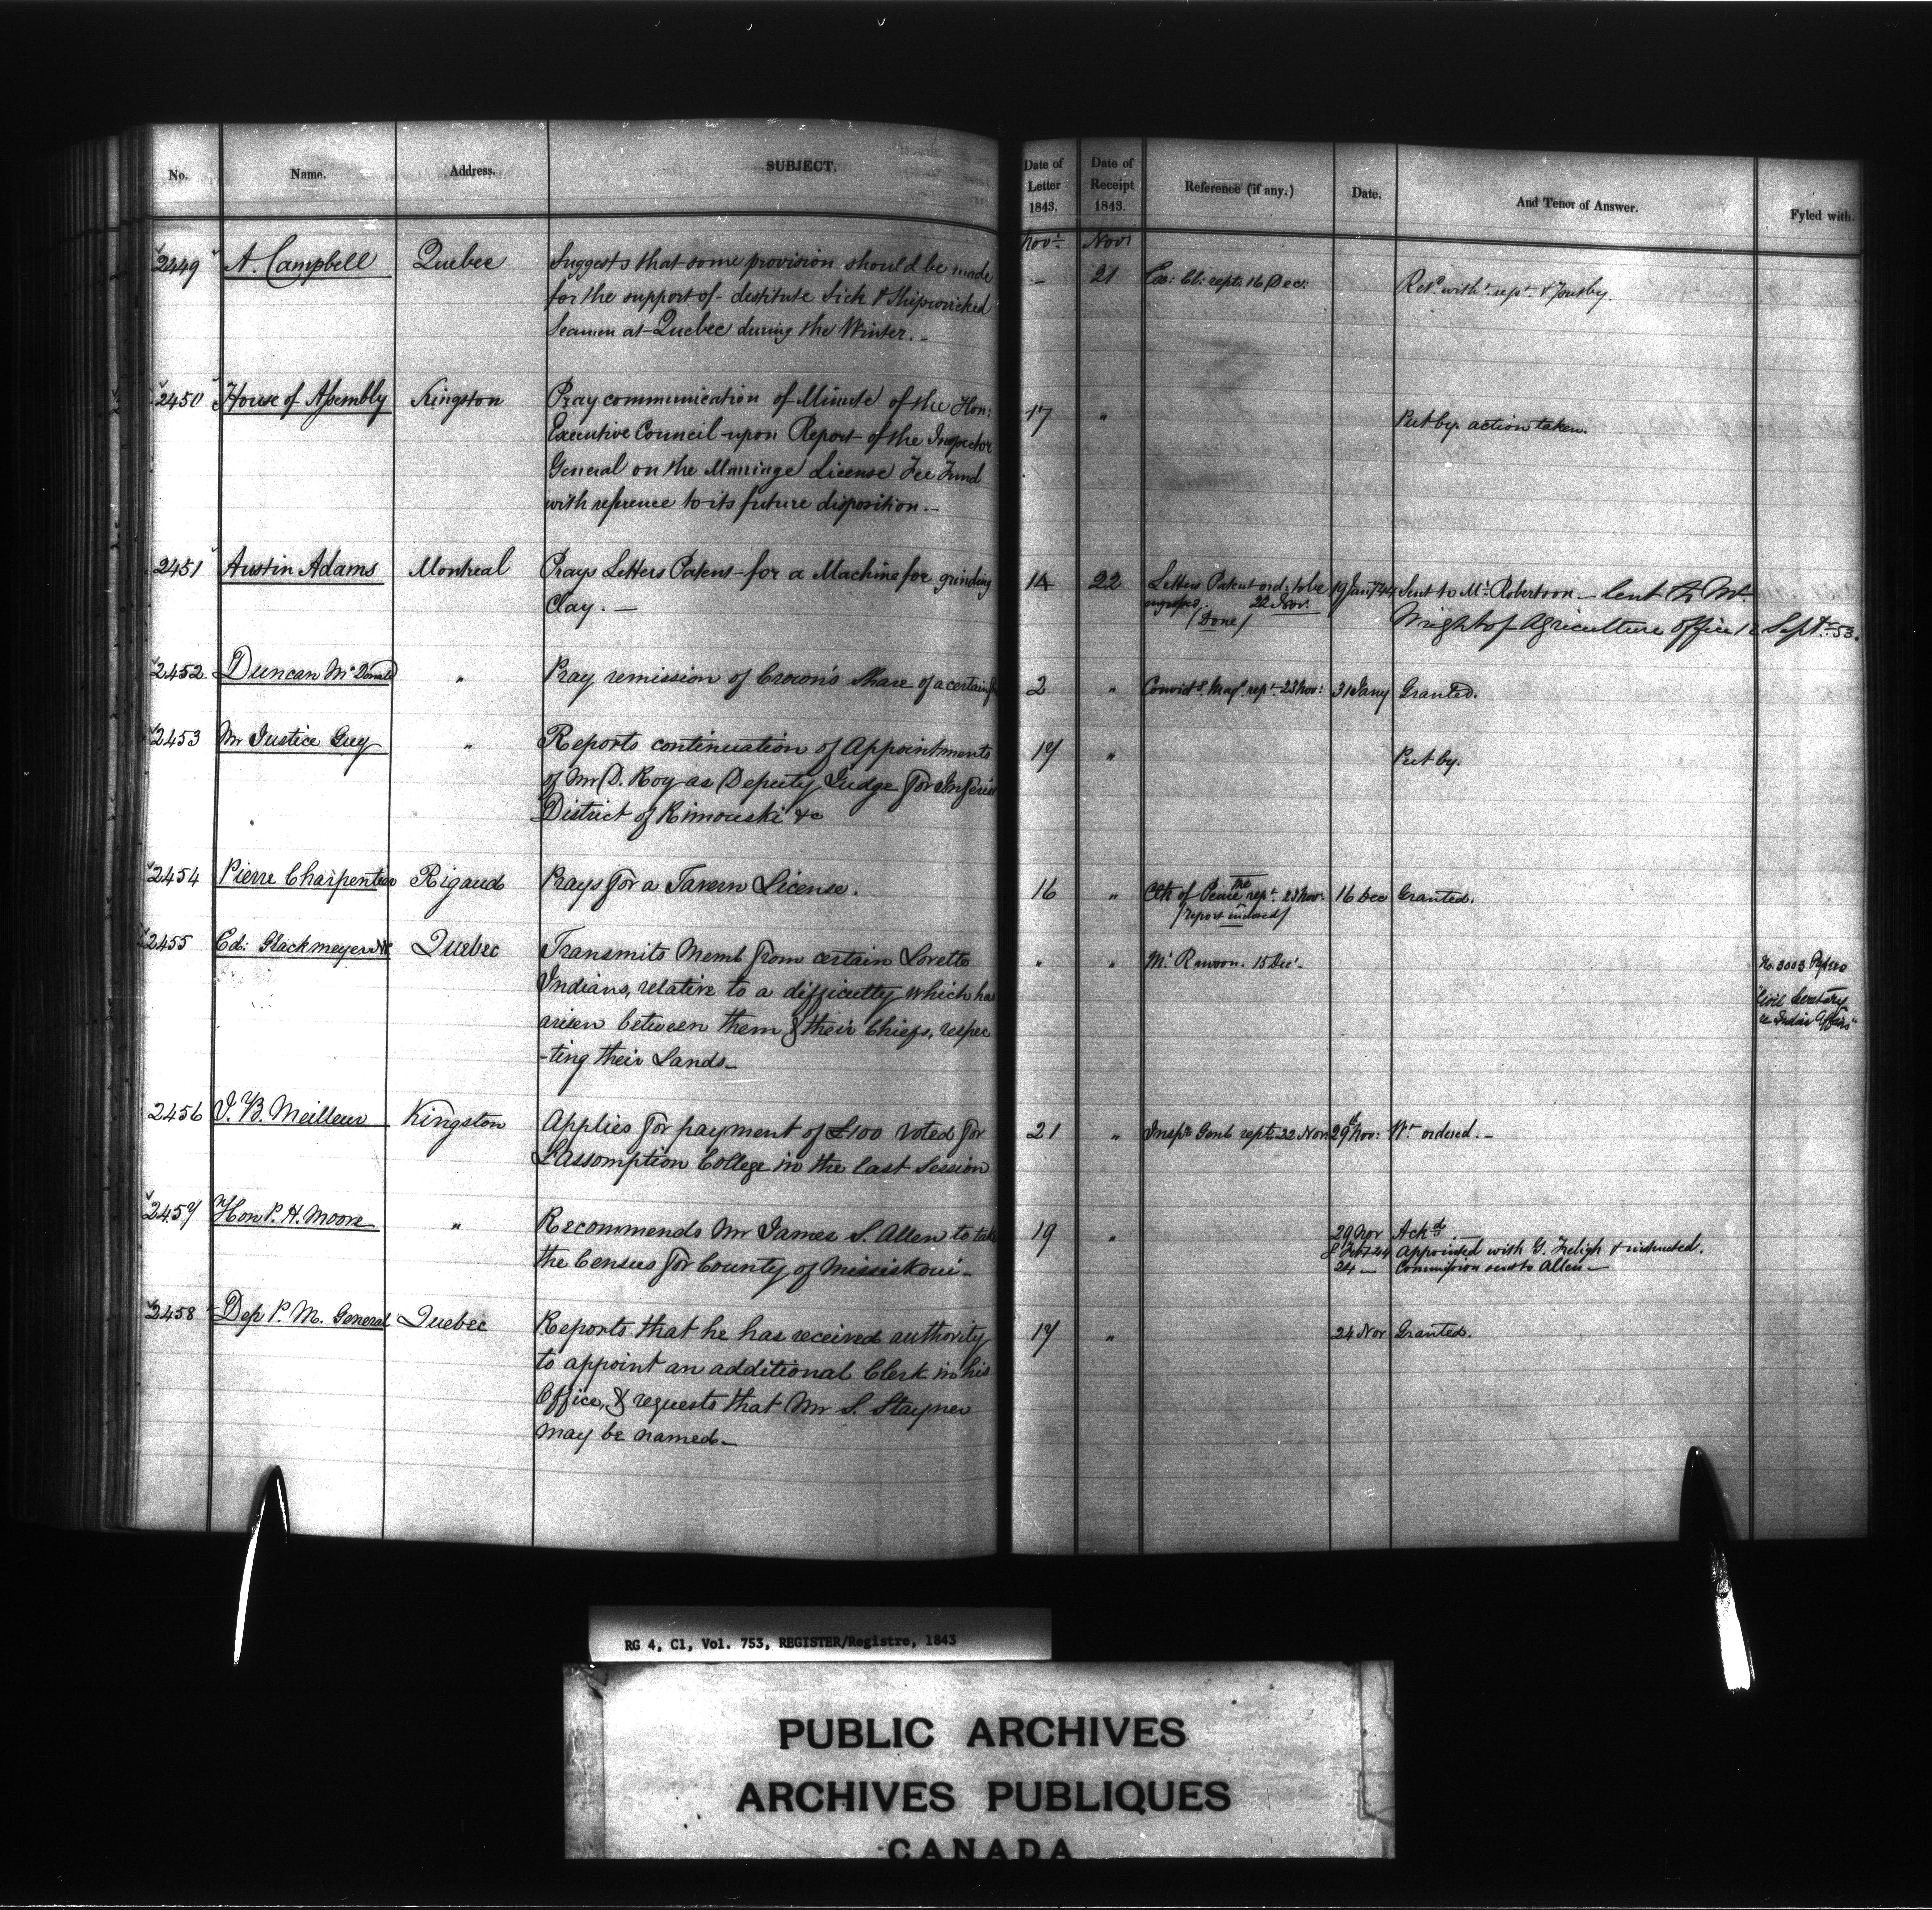 No. Name. Address. SUBJECT.
Date of Letter 1843. Date of Receipt 1843. Reference (if any.) Date. And Tenor of Answer. Fyled with.
Novr Novr
2449 A. Campbell Quebec Suggests that some provision should be made - 21 Ex: Cl: rept 16 Dec:
for the support of destitute Sick & Shipwrecked
Seamen at Quebec during the Winter.
2450 House of Assembly Kingston Pray communication of Minute of the Hon: 17 " Put by. action taken.
Executive Council upon Report of the Inspector
General on the Marriage License Fee Fund
with reference to its future disposition.
2451 Austin Adams Montreal Prays Letters Patent for a Machine for grinding 14 22 Letters Patent ord: to be 19 Jany 44 Sent to Mr Robertson - lent to Mr
Clay. 22 Nov. Wright of Agriculture Office 12 Septr 53.
/Done/
2452 Duncan McDonald " Pray remission of Crown's Share of a certain 2 " rept 23 Nov: 31 Jany Granted.
2453 Mr Justice Guy " Reports continuation of Appointments 17 " Put by.
of Mr D. Roy as Deputy Judge for Inferior
District of Rimouski &c
2454 Pierre Charpentier Rigaud Prays for a Tavern License. 16 " Clk of Peace rept 23 Nov: 16 Dec Granted.
/report enclosed/
2455 Ed: Glackmeyer Quebec Transmits Meml from certain Loretto " " Mr Rawson. 15 Dec: No. 3003
Indians, relative to a difficulty which has Civil Secretary
arisen between them & their Chiefs, respec Indian Affairs"
-ting their Lands
2456 J. B. Meilleur Kingston Applies for payment of £100 voted for 21 " Inspr Genl rept 22 Nov 29th Nov: Wt ordered.
L'Assomption College in the last Session
2457 Hon P. H. Moore " Recommends Mr James S. Allen to take 19 " 29 Nov Ackd
the Census for County of Missiskoui 8 Feby 44 Appointed with G. Freligh & instructed.
24 - Commission sent to Allen
2458 Dep P. M. General Quebec Reports that he has received authority 17 " 24 Nov Granted.
to appoint an additional Clerk in his
Office, & requests that Mr S. Stayner
may be named
RG 4, C1, Vol. 753, REGISTER/Registre, 1843
PUBLIC ARCHIVES
ARCHIVES PUBLIQUES
CANADA